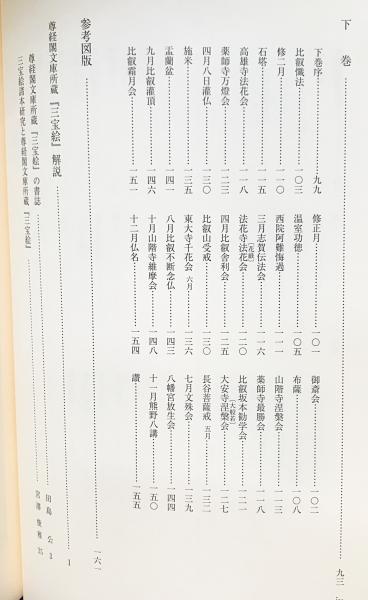 下巻……九三
下巻序……九九　修正月……一〇一　御斎会……一〇二
比叡懺法……一〇三　温室功徳……一〇五　布薩……一〇八
修二月……一一〇　西院阿難悔過……一一一　山階寺涅槃会……一一三
石塔……一一五　三月志賀伝法会……一一六　薬師寺最勝会……一一八
高雄寺法花会……一一九　法花寺法花会（花厳）……一二〇　比叡坂本勧学会……一二一
薬師寺万燈会……一二三　四月比叡舎利会……一二五　大安寺涅槃会（大般若）……一二七
四月八日灌仏……一三〇　比叡山受戒……一三〇　長谷菩薩戒 五月……一三二
施米……一三五　東大寺千花会 六月……一三六　七月文殊会……一三九
盂蘭盆……一四一　八月比叡不断念仏……一四三　八幡宮放生会……一四四
九月比叡灌頂……一四六　十月山階寺維摩会……一四八　十一月熊野八講……一五〇
比叡霜月会……一五一　十二月仏名……一五四　讃……一五五
参考図版……一六一
尊経閣文庫所蔵『三宝絵』解説……1
尊経閣文庫所蔵『三宝絵』の書誌……田島 公 3
三宝絵諸本研究と尊経閣文庫所蔵『三宝絵』……宮澤 俊雅